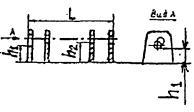 L
A
Вид А
h₁
h₂
h₁